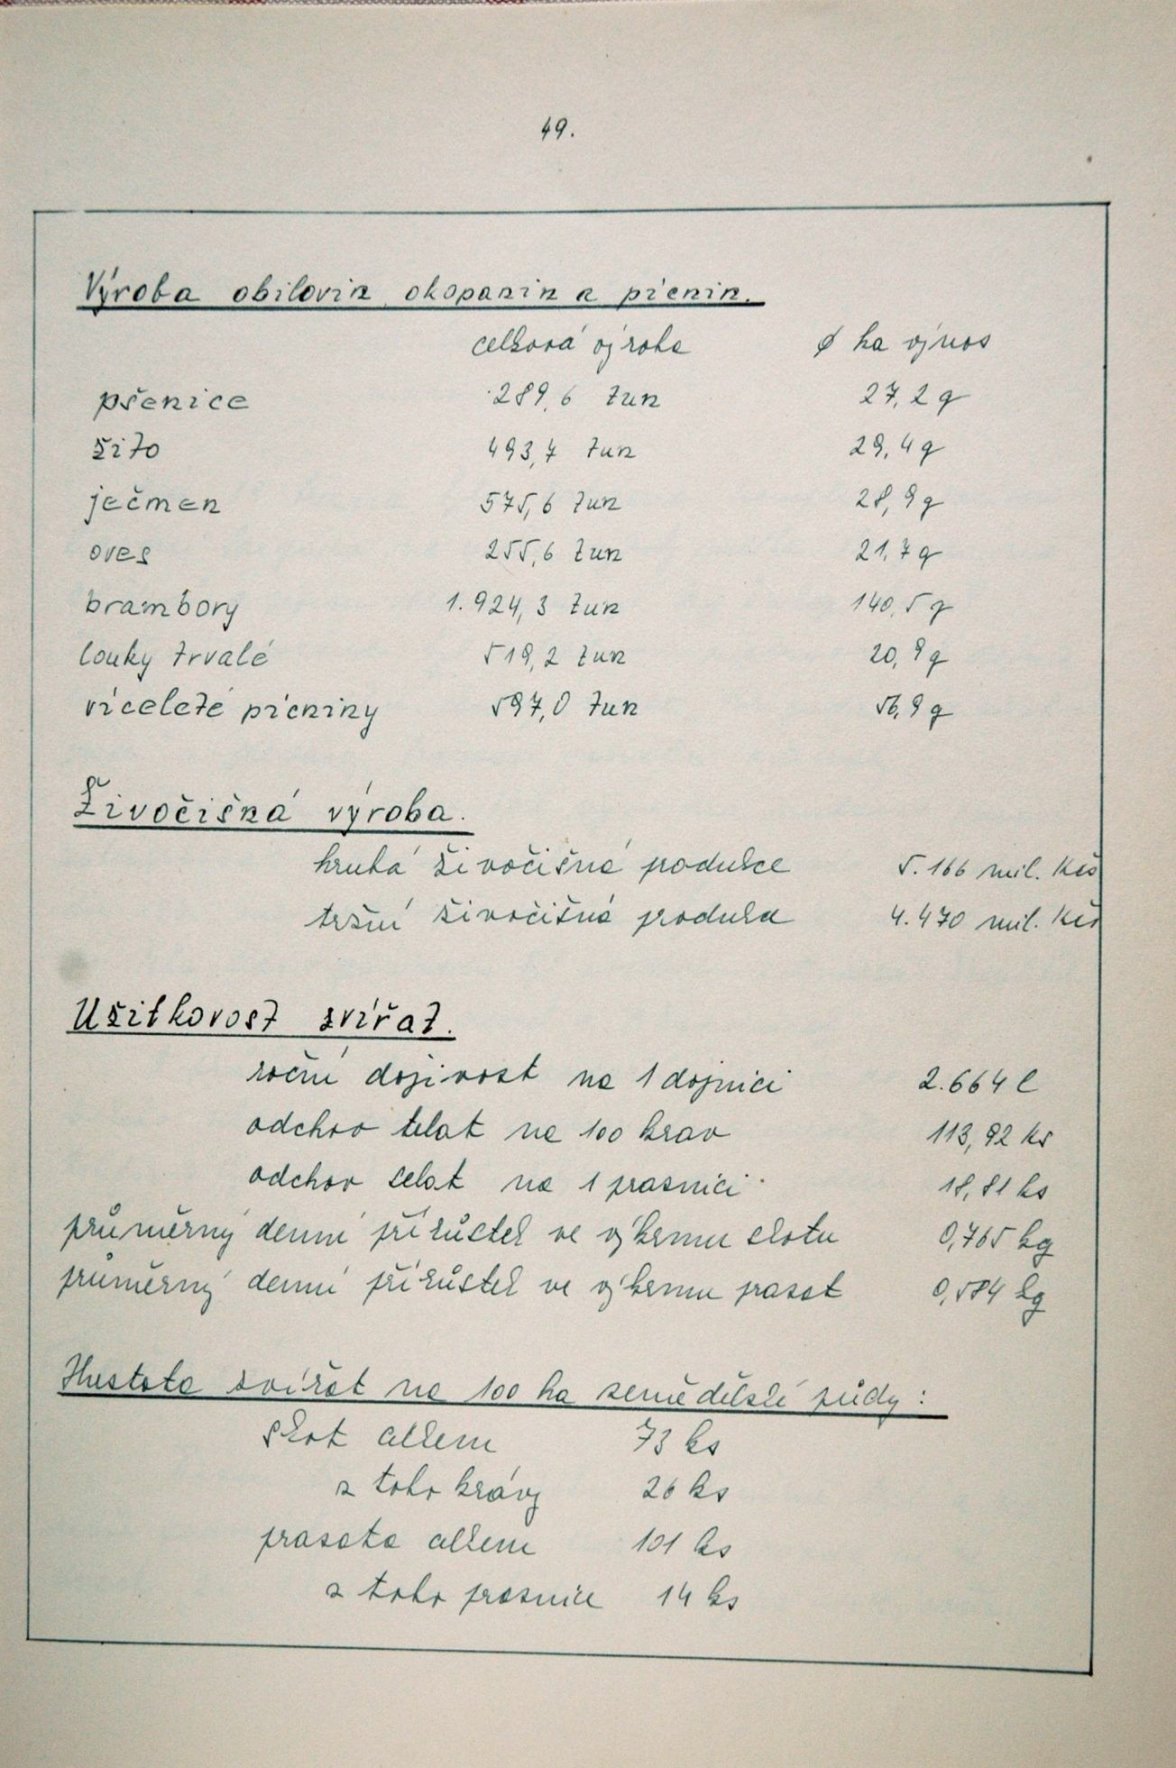 49.
Výroba obilovin, okopanin a pícnin.
celková výroba ø ha výnos
pšenice 289,6 tun 27,2 q
žito 493,7 tun 29,4 q
ječmen 575,6 tun 28,9 q
oves 255,6 tun 21,7 q
brambory 1.924,3 tun 140,5 q
louky trvalé 519,2 tun 20,9 q
víceleté pícniny 597,0 tun 56,9 q
Živočišná výroba.
hrubá živočišná produkce 5.166 mil. Kčs
tržní živočišná produkce 4.470 mil. Kčs
Užitkovost zvířat.
roční dojivost na 1 dojnici 2.664 l
odchov telat na 100 krav 113,92 ks
odchov selat na 1 prasnici 18,81 ks
průměrný denní přírůstek ve výkrmu skotu 0,765 kg
průměrný denní přírůstek ve výkrmu prasat 0,584 kg
Hustota zvířat na 100 ha zemědělské půdy:
skot celkem 73 ks
z toho krávy 26 ks
prasata celkem 101 ks
z toho prasnice 14 ks